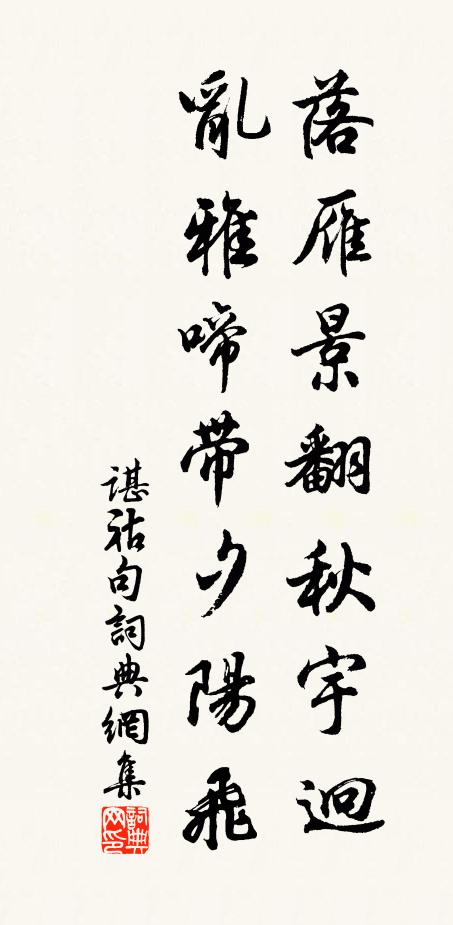 落雁景翻秋宇迥
亂雅啼帶夕陽飛
諶祜句詞典網集
詞典网印